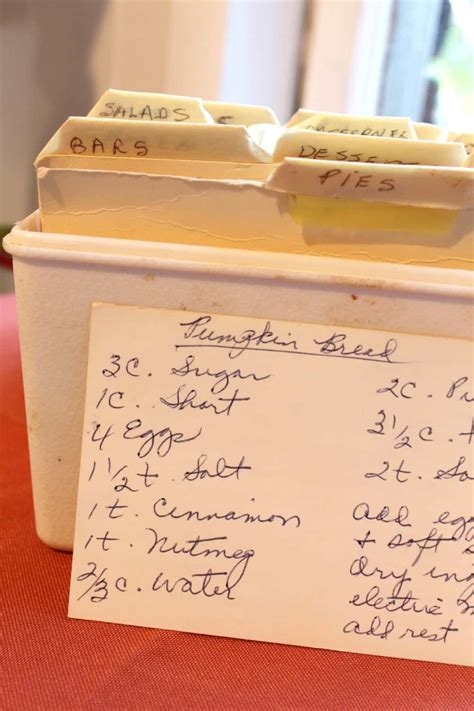 SALADS
BARS
DESSERT
PIES
Pumpkin Bread
3c. Sugar
1c. Short
4 Eggs
1 1/2 t. Salt
1t. Cinnamon
1t. Nutmeg
2/3 c. Water
2c. Pu
3 1/2 c.
2t. So
add egg
+ soft
dry ing
electric
add rest